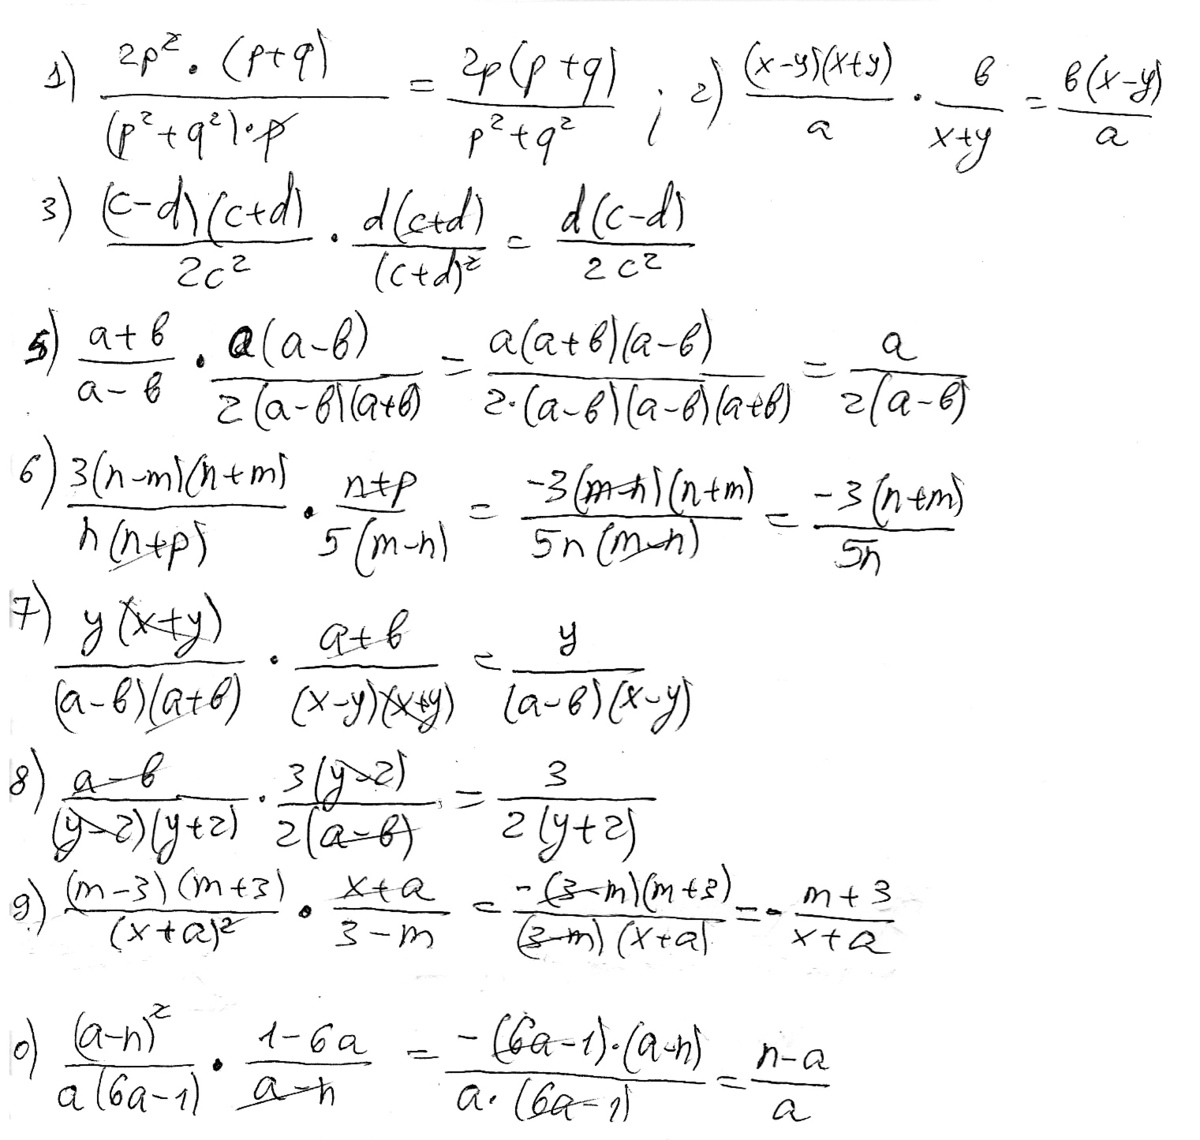 1) \frac{2p^2 \cdot (p+q)}{(p^2+q^2) \cdot p} = \frac{2p(p+q)}{p^2+q^2} ; 2) \frac{(x-y)(x+y)}{a} \cdot \frac{в}{x+y} = \frac{в(x-y)}{a}
3) \frac{(c-d)(c+d)}{2c^2} \cdot \frac{d(c+d)}{(c+d)^2} = \frac{d(c-d)}{2c^2}
5) \frac{a+в}{a-в} \cdot \frac{a(a-в)}{2(a-в)(a+в)} = \frac{a(a+в)(a-в)}{2 \cdot (a-в)(a-в)(a+в)} = \frac{a}{2(a-в)}
6) \frac{3(n-m)(n+m)}{n(n+p)} \cdot \frac{n+p}{5(m-n)} = \frac{-3(m-n)(n+m)}{5n(m-n)} = \frac{-3(n+m)}{5n}
7) \frac{y(x+y)}{(a-в)(a+в)} \cdot \frac{a+в}{(x-y)(x+y)} = \frac{y}{(a-в)(x-y)}
8) \frac{a-в}{(y-2)(y+2)} \cdot \frac{3(y-2)}{2(a-в)} = \frac{3}{2(y+2)}
9) \frac{(m-3)(m+3)}{(x+a)^2} \cdot \frac{x+a}{3-m} = \frac{-(3-m)(m+3)}{(3-m)(x+a)} = -\frac{m+3}{x+a}
0) \frac{(a-n)^2}{a(6a-1)} \cdot \frac{1-6a}{a-n} = \frac{-(6a-1) \cdot (a-n)}{a \cdot (6a-1)} = \frac{n-a}{a}